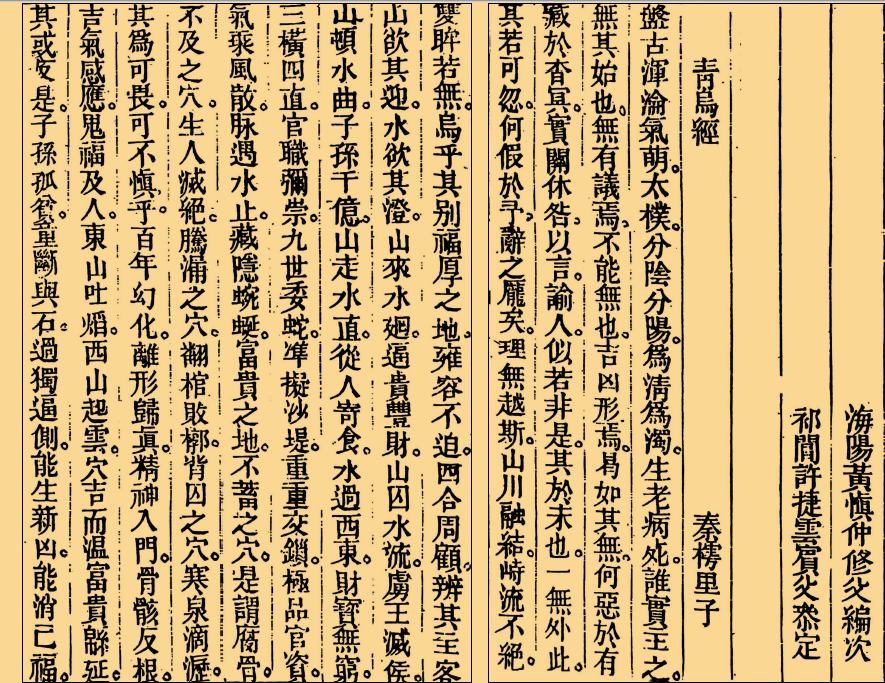 海陽黃慎仲修父編次
祁閶許捷雲賓父叅定
青烏經 秦樗里子
盤古渾淪氣萌。太樸。分陰分陽。爲清爲濁。生老病死。誰實主之。
無其始也。無有議焉。不能無也。吉凶形焉。曷如其無。何惡於有
藏於杳冥。實關休咎。以言諭人。似若非是。其於末也。一無外此。
其若可忽。何假於予。辭之龎矣。理無越斯。山川融結。峙流不絕。
雙眸若無。烏乎其别。福厚之地。雍容不迫。四合周顧。辨其主客
山欲其迎。水欲其澄。山來水廻。逼貴豐財。山囚水流。虜王滅侯。
山頓水曲。子孫千億。山走水直。從人寄食。水過西東。財寳無窮。
三橫四直。官職彌崇。九世委蛇。凖擬沙堤。重重交鎖。極品官資。
氣乘風散。脉遇水止。藏隱蜿蜒。富貴之地。不蓄之穴。是謂腐骨。
不及之穴。生人滅絕。騰漏之穴。翻棺敗槨。背囚之穴。寒泉滴瀝。
其爲可畏。可不慎乎。百年幻化。離形歸眞。精神入門。骨骸反根。
吉氣感應。鬼福及人。東山吐熖。西山起雲。穴吉而温。富貴緜延。
其或反是。子孫孤貧。童斷與石。過獨逼側。能生新凶。能消已福。